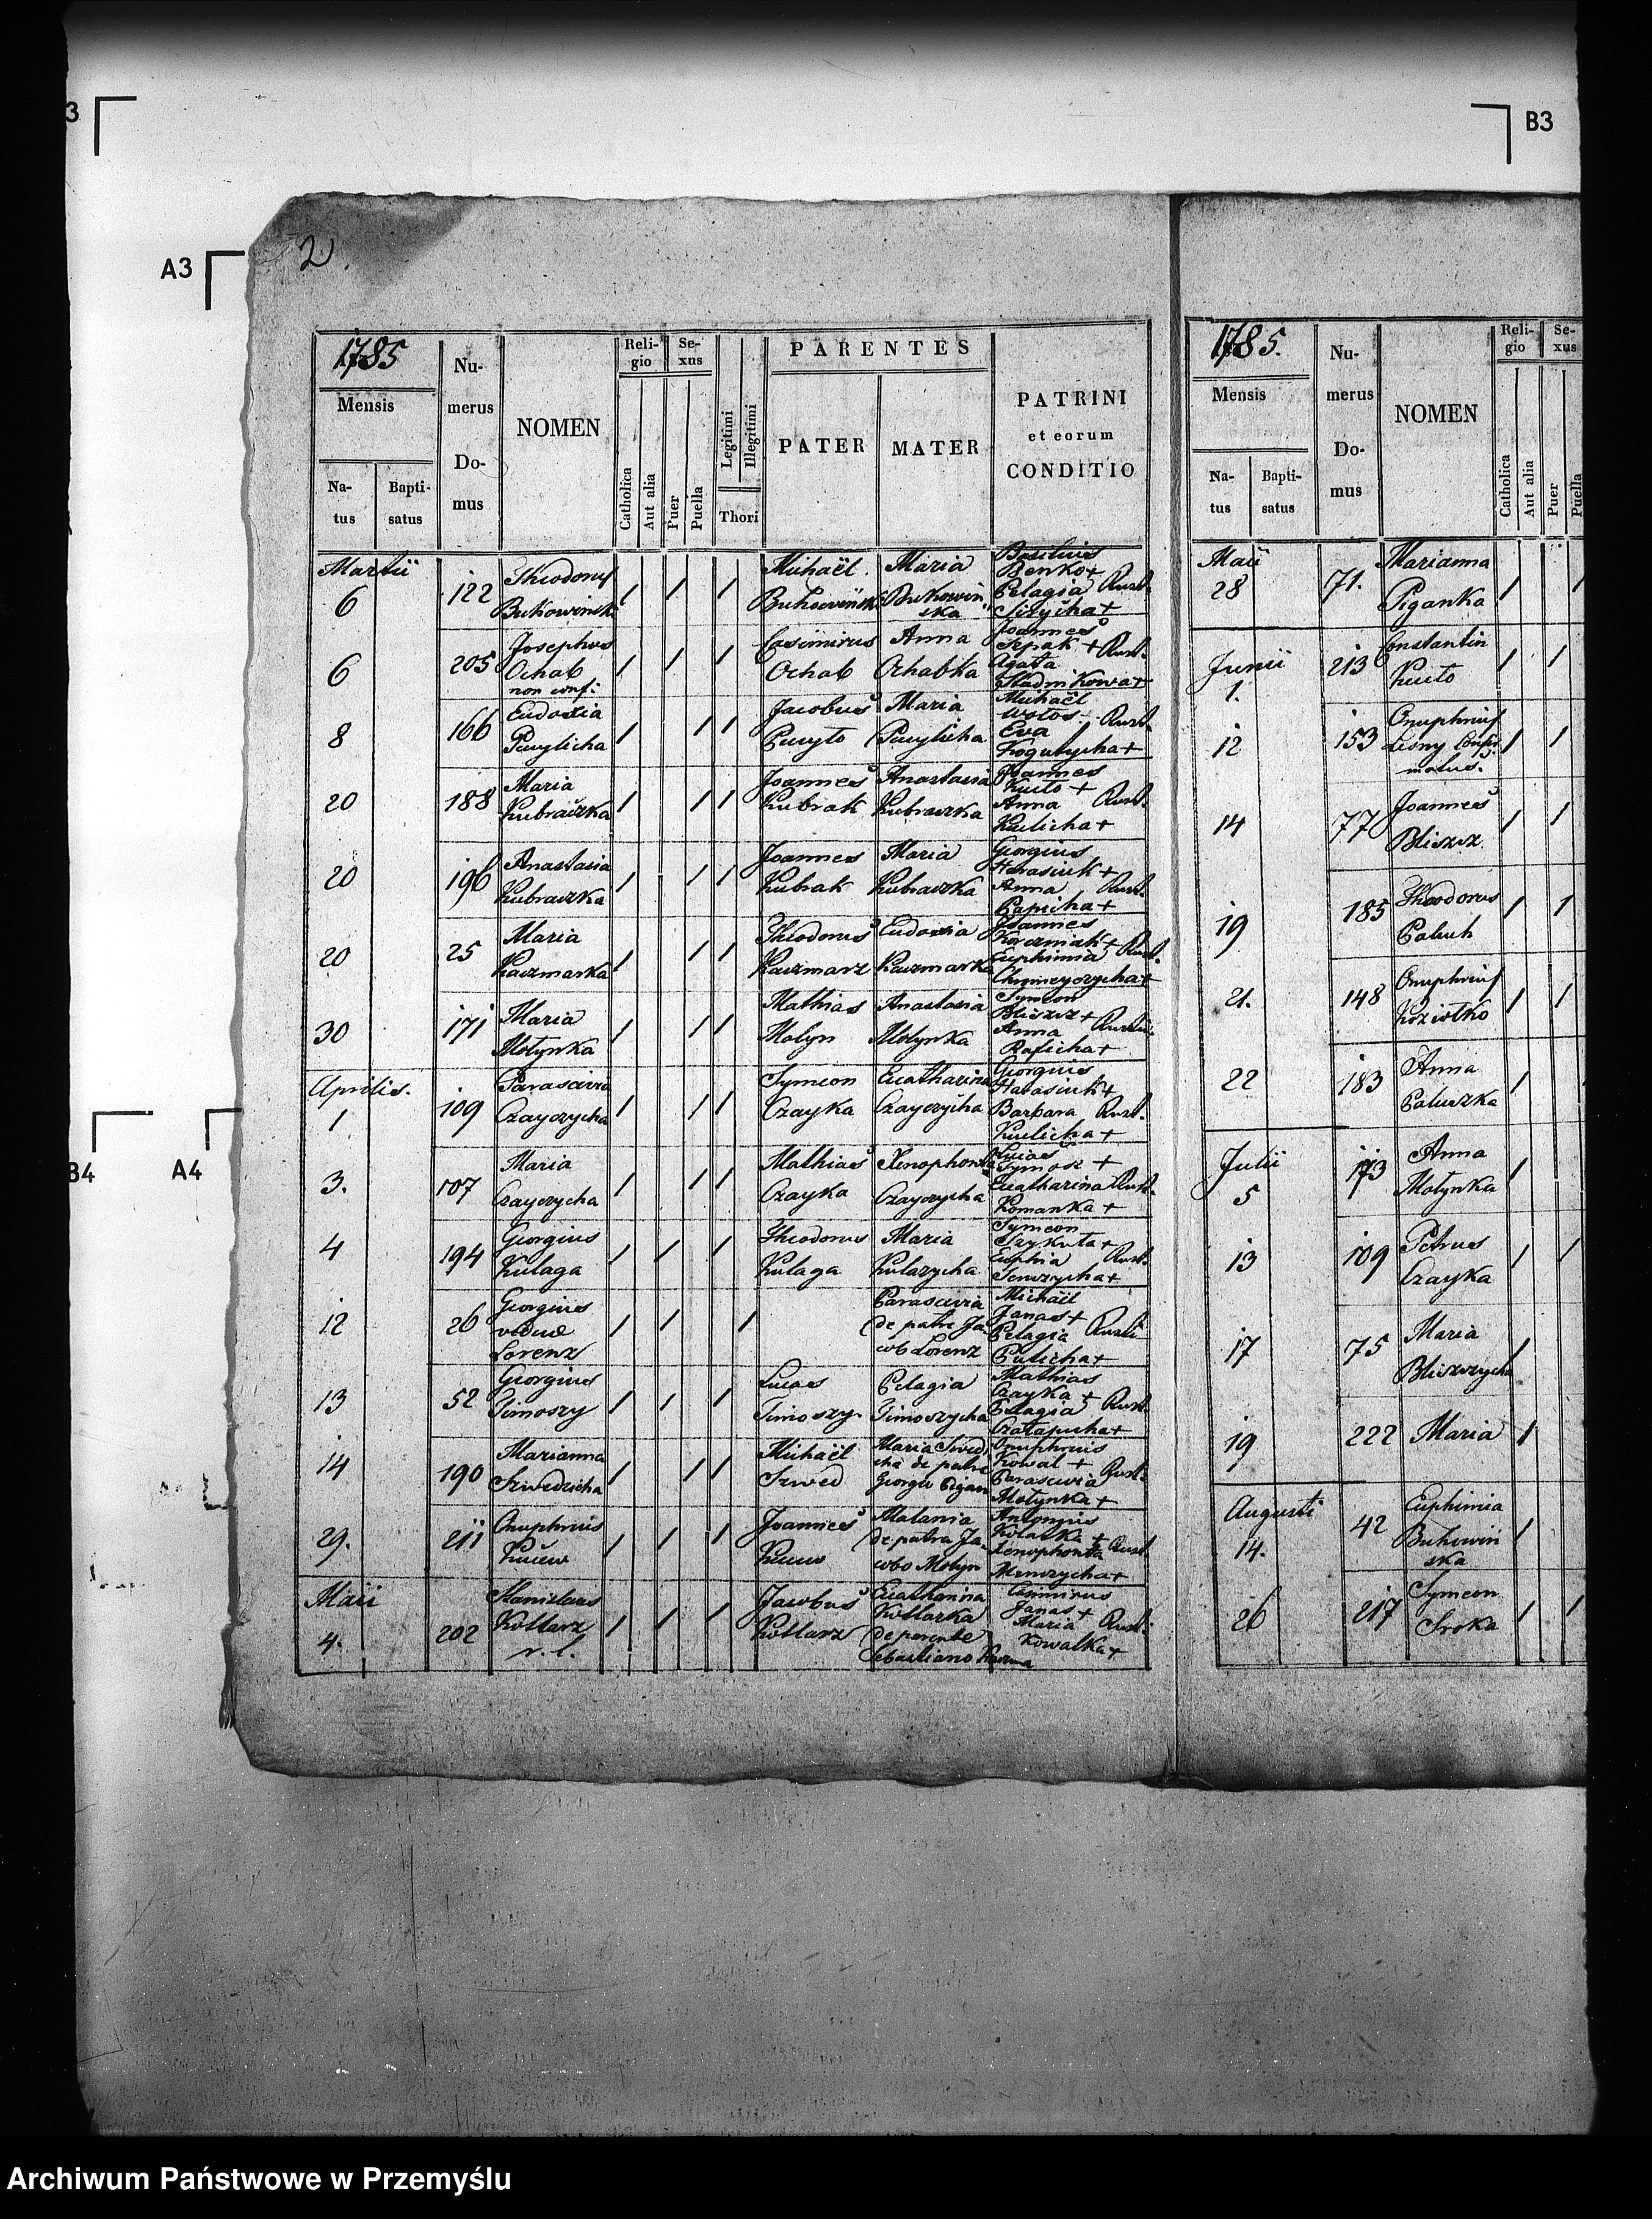 3
B3
A3
2
1785
Mensis
Na-
tus
Bapti-
satus
Nu-
merus
Do-
mus
NOMEN
Reli-
gio
Catholica
Aut alia
Se-
xus
Puer
Puella
Legitimi
Illegitimi
Thori
PARENTES
PATER
MATER
PATRINI
et eorum
CONDITIO
Martii
6 122 Theodorus Bukowinski Michaël Bukowinski Maria Bukowinska Basilius Benko + Pelagia Rust.
6 205 Josephus Ochab non conf: Casimirus Ochab Anna Ochabka Joannes Szpak + Agata Stadnikowa + Rust.
8 166 Eudoxia Jacobus Maria Michaël Wołos + Eva Kogutycha + Rust.
20 188 Maria Kubraczka Joannes Kubrak Anastasia Kubraczka Joannes Kuito + Anna Kulicha + Rust.
20 196 Anastasia Kubraczka Joannes Kubrak Maria Kubraczka Georgius Harasiuk + Anna Papicha + Rust.
20 25 Maria Kaczmarka Theodorus Kaczmarz Eudoxia Kaczmarka Joannes Euphimia Rust.
30 171 Maria Motynka Mathias Motyn Anastasia Motynka Symeon Bliszcz + Anna Rusti
Aprilis.
1 109 Parascevia Czayczycha Symeon Czayka Ecatharina Czayczycha Georgius Harasiuk + Barbara Kulicha + Rust.
3. 107 Maria Czayczycha Mathias Czayka Xenophonta Czayczycha Lucas + Ecatharina Romanka + Rust.
4 194 Georgius Kulaga Theodorus Kulaga Maria Kulazycha Symeon Rust.
12 26 Georgius Lorenz Parascevia de patre Jacob Lorenz Michaël Janas + Pelagia Rusti
13 52 Georgius Timoszy Lucas Timoszy Pelagia Timoszycha Mathias Czayka + Pelagia Rust.
14 190 Marianna Szwedzicha Michaël Szwed Maria de patre Georgio Cigan Onuphrius Kowal + Parascevia Motynka + Rust.
29. 211 Onuphrius Joannes Malania de patre Jacobo Motyn Antonius + Xenophonta Rust.
Maii
4. 202 Stanislaus Kotlarz r. l. Jacobus Kotlarz Ecatharina Kotlarka de parente Sebastiano Casimirus Janas + Maria Kowalka + Rusti
1785.
Mensis
Na-
tus
Bapti-
satus
Nu-
merus
Do-
mus
NOMEN
Reli-
gio
Catholica
Aut alia
Se-
xus
Puer
Puella
Maii
28 71. Marianna Piganka
Junii
1. 213 Constantin Kuito
12 153 Onuphrius Lisny Confirmatus.
14 77 Joannes Bliszcz
19 185 Theodorus Paluch
21. 148 Onuphrius Koziołko
22 183 Anna Paluszka
Julii
5 173 Anna Motynka
13 109 Petrus Czayka
17 75 Maria Bliszczycha
19 222 Maria
Augusti
14. 42 Euphimia Bukowinska
26 217 Symeon Sroka
B4
A4
Archiwum Państwowe w Przemyślu